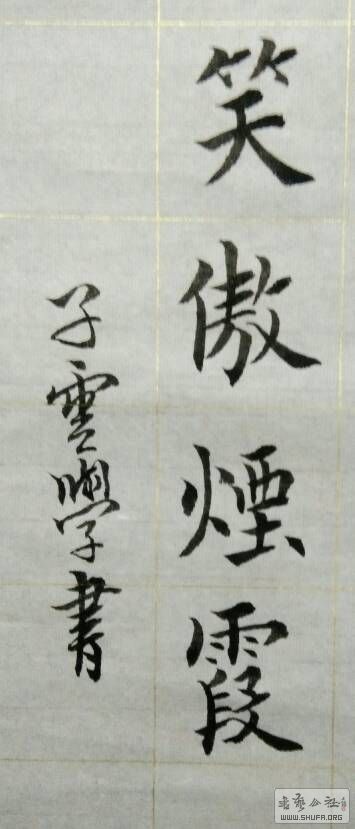 笑傲煙霞
子雲學書
WWW.SHUFA.ORG